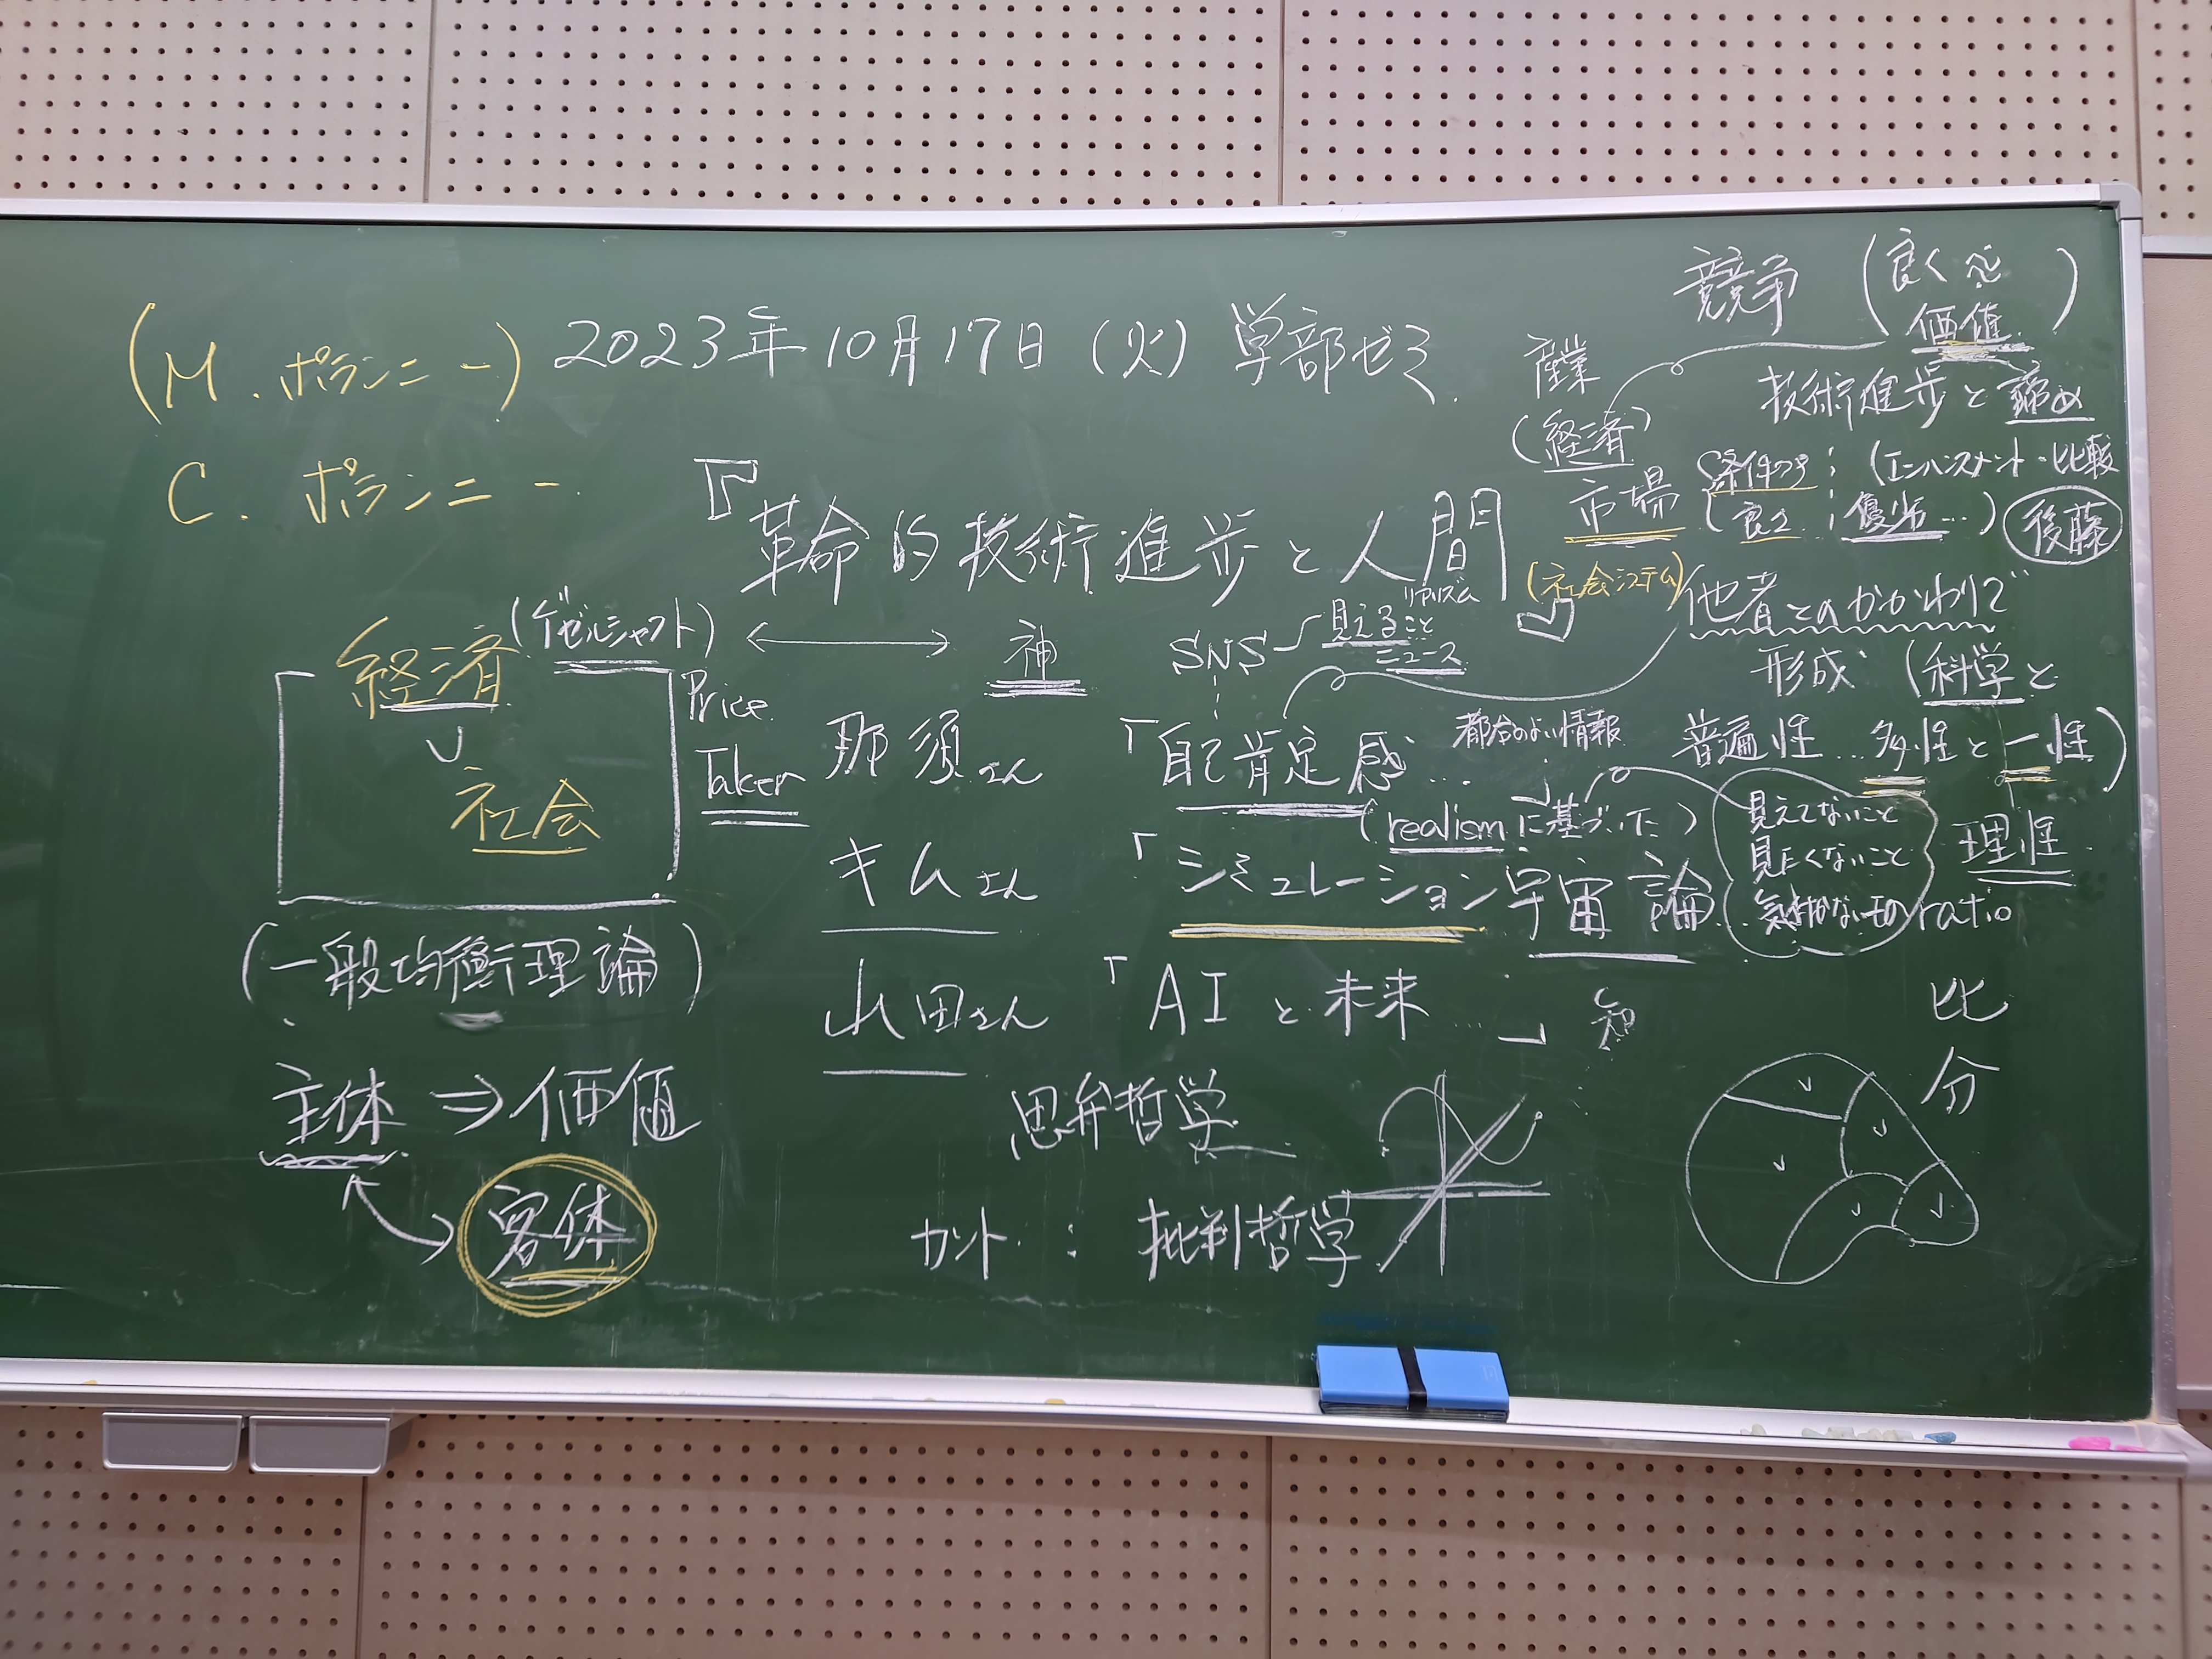 (M.ポランニー)
C.ポランニー
2023年10月17日(火) 学部ゼミ
『革命的技術進歩と人間
経済(ゲゼルシャフト)
社会
Price
Taker
(一般均衡理論)
主体⇒価値
客体
神
那須さん
「自己肯定感…」
SNS
見えること
リアリズム
ニュース
都合のよい情報
キムさん
(realismに基づいた)
「シミュレーション宇宙論…
山田さん
「AIと未来…」
知
思弁哲学
カント:批判哲学
競争(良く
価値)
産業
(経済)
市場
(社会システム)
技術進歩と諦め
条件つき:(エンハンスメント・比較
(良さ:優劣…)
後藤
他者とのかかわりで
形成(科学と
普遍性…多性と一性)
見えてないこと
見たくないこと
気付かないもの
理性
ratio
比
分